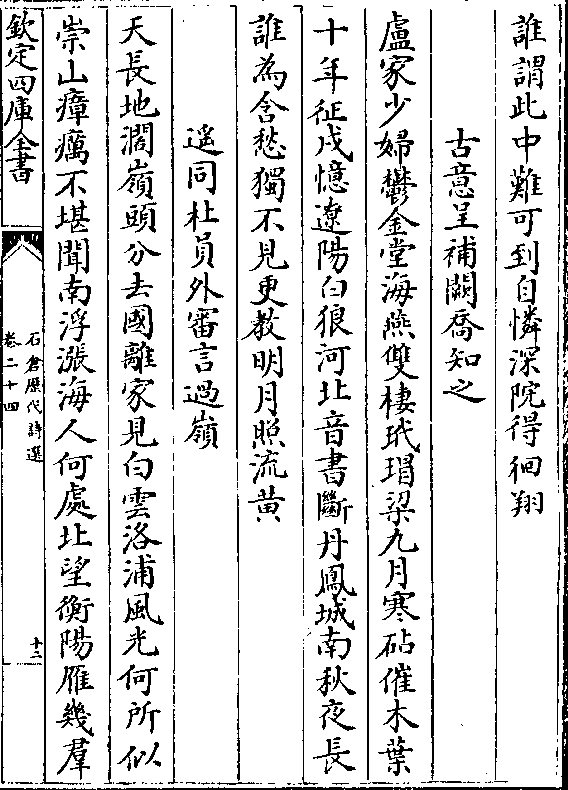 誰謂此中難可到自憐深院得徊翔
古意呈補闕喬知之
盧家少婦鬱金堂海燕雙棲玳瑁梁九月寒砧催木葉
十年征戍憶遼陽白狼河北音書斷丹鳳城南秋夜長
誰為含愁獨不見更教明月照流黄
遥同杜員外審言過嶺
天長地濶嶺頭分去國離家見白雲洛浦風光何所似
崇山瘴癘不堪聞南浮漲海人何處北望衡陽雁幾羣
欽定四庫全書
石倉歷代詩選
卷二十四
十二